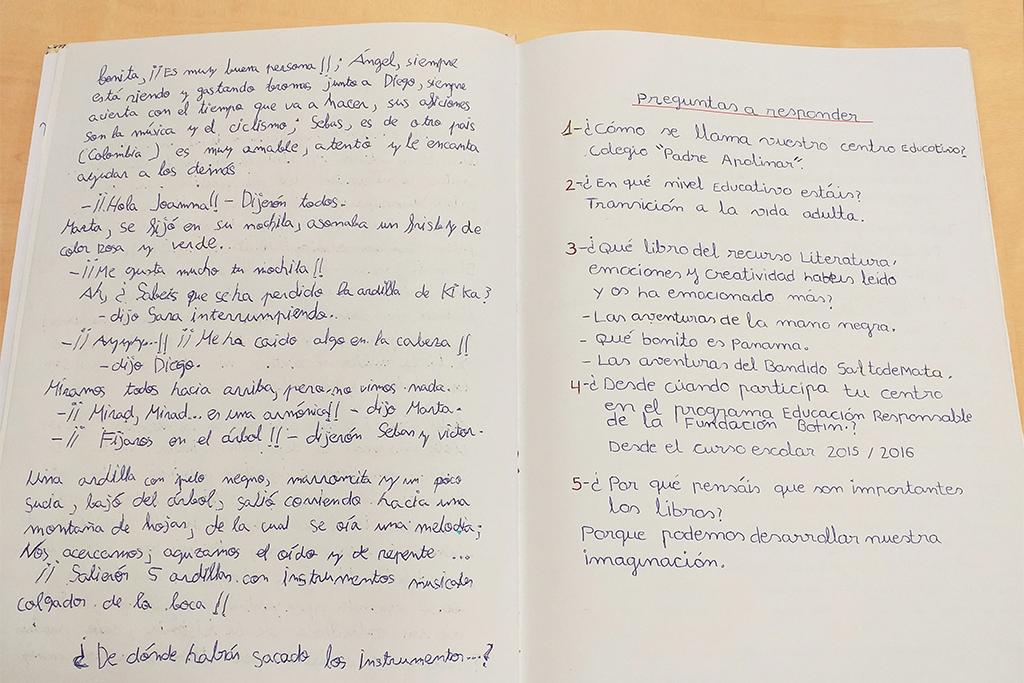 bonita, ¡¡Es muy buena persona!!; Ángel, siempre
está riendo y gastando bromas junto a Diego, siempre
acierta con el tiempo que va a hacer, sus aficiones
son la música y el ciclismo; Sebas, es de otro pais
(Colombia) es muy amable, atento y le encanta
ayudar a los demás
-¡¡Hola Joanna!! - Dijerón todos.
Marta, se fijó en su mochila, asomaba un frisby de
color rosa y verde..
-¡¡Me gusta mucho tu mochila!!
Ah, ¿Sabeis que se ha perdido la ardilla de Kika?
- dijo Sara interrumpiendo..
-¡¡Ayyyyy..!! ¡¡Me ha caido algo en la cabeza!!
- dijo Diego.
Miramos todos hacia arriba, pero no vimos nada.
-¡¡ Mirad, Mirad... es una armónica!! - dijo Marta.
-¡¡ Fijaros en el árbol!! - dijerón Sebas y victor.
Una ardilla con pelo negro, marroncita y un poco
sucia, bajó del árbol, salió corriendo hacia una
montaña de hojas, de la cual se oía una melodía;
Nos acercamos; aguzamos el oído y de repente ...
¡¡ Salierón 5 ardillas con instrumentos musicales
colgados de la boca!!
¿De dónde habrán sacado los instrumentos...?
Preguntas a responder
1-¿Cómo se llama vuestro centro Educativo?
Colegio "Padre Apolinar".
2-¿En qué nivel Educativo estáis?
Transición a la vida adulta.
3-¿Qué libro del recurso Literatura,
emociones y creatividad habeis leido
y os ha emocionado más?
- Las aventuras de la mano negra.
- Qué bonito es Panama.
- Las aventuras del Bandido Saltodemata.
4-¿Desde cúando participa tu centro
en el programa Educación Responsable
de la Fundación Botín.?
Desde el curso escolar 2015 / 2016
5-¿Por qué pensáis que son importantes
los libros?
Porque podemos desarrollar nuestra
imaginación.